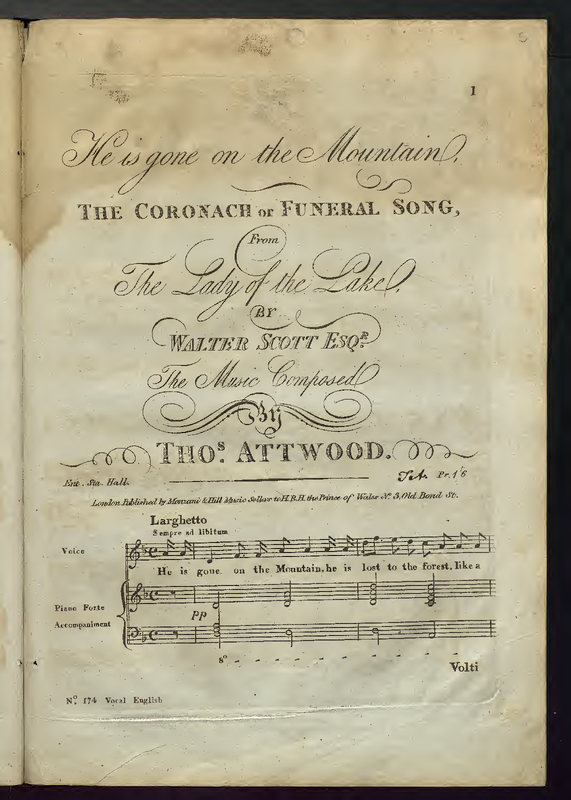 1
He is gone on the Mountain.
THE CORONACH or FUNERAL SONG,
From
The Lady of the Lake,
BY
WALTER SCOTT ESQR.
The Music Composed
By
THOS. ATTWOOD.
Ent. Sta. Hall. Pr. 1/6
London Published by Monzani & Hill Music Sellers to H.R.H. the Prince of Wales No. 3, Old Bond St.
Larghetto
Sempre ad libitum
Voice
He is gone on the Mountain, he is lost to the forest, like a
Piano Forte
Accompaniment
PP
8o
Volti
No. 174 Vocal English